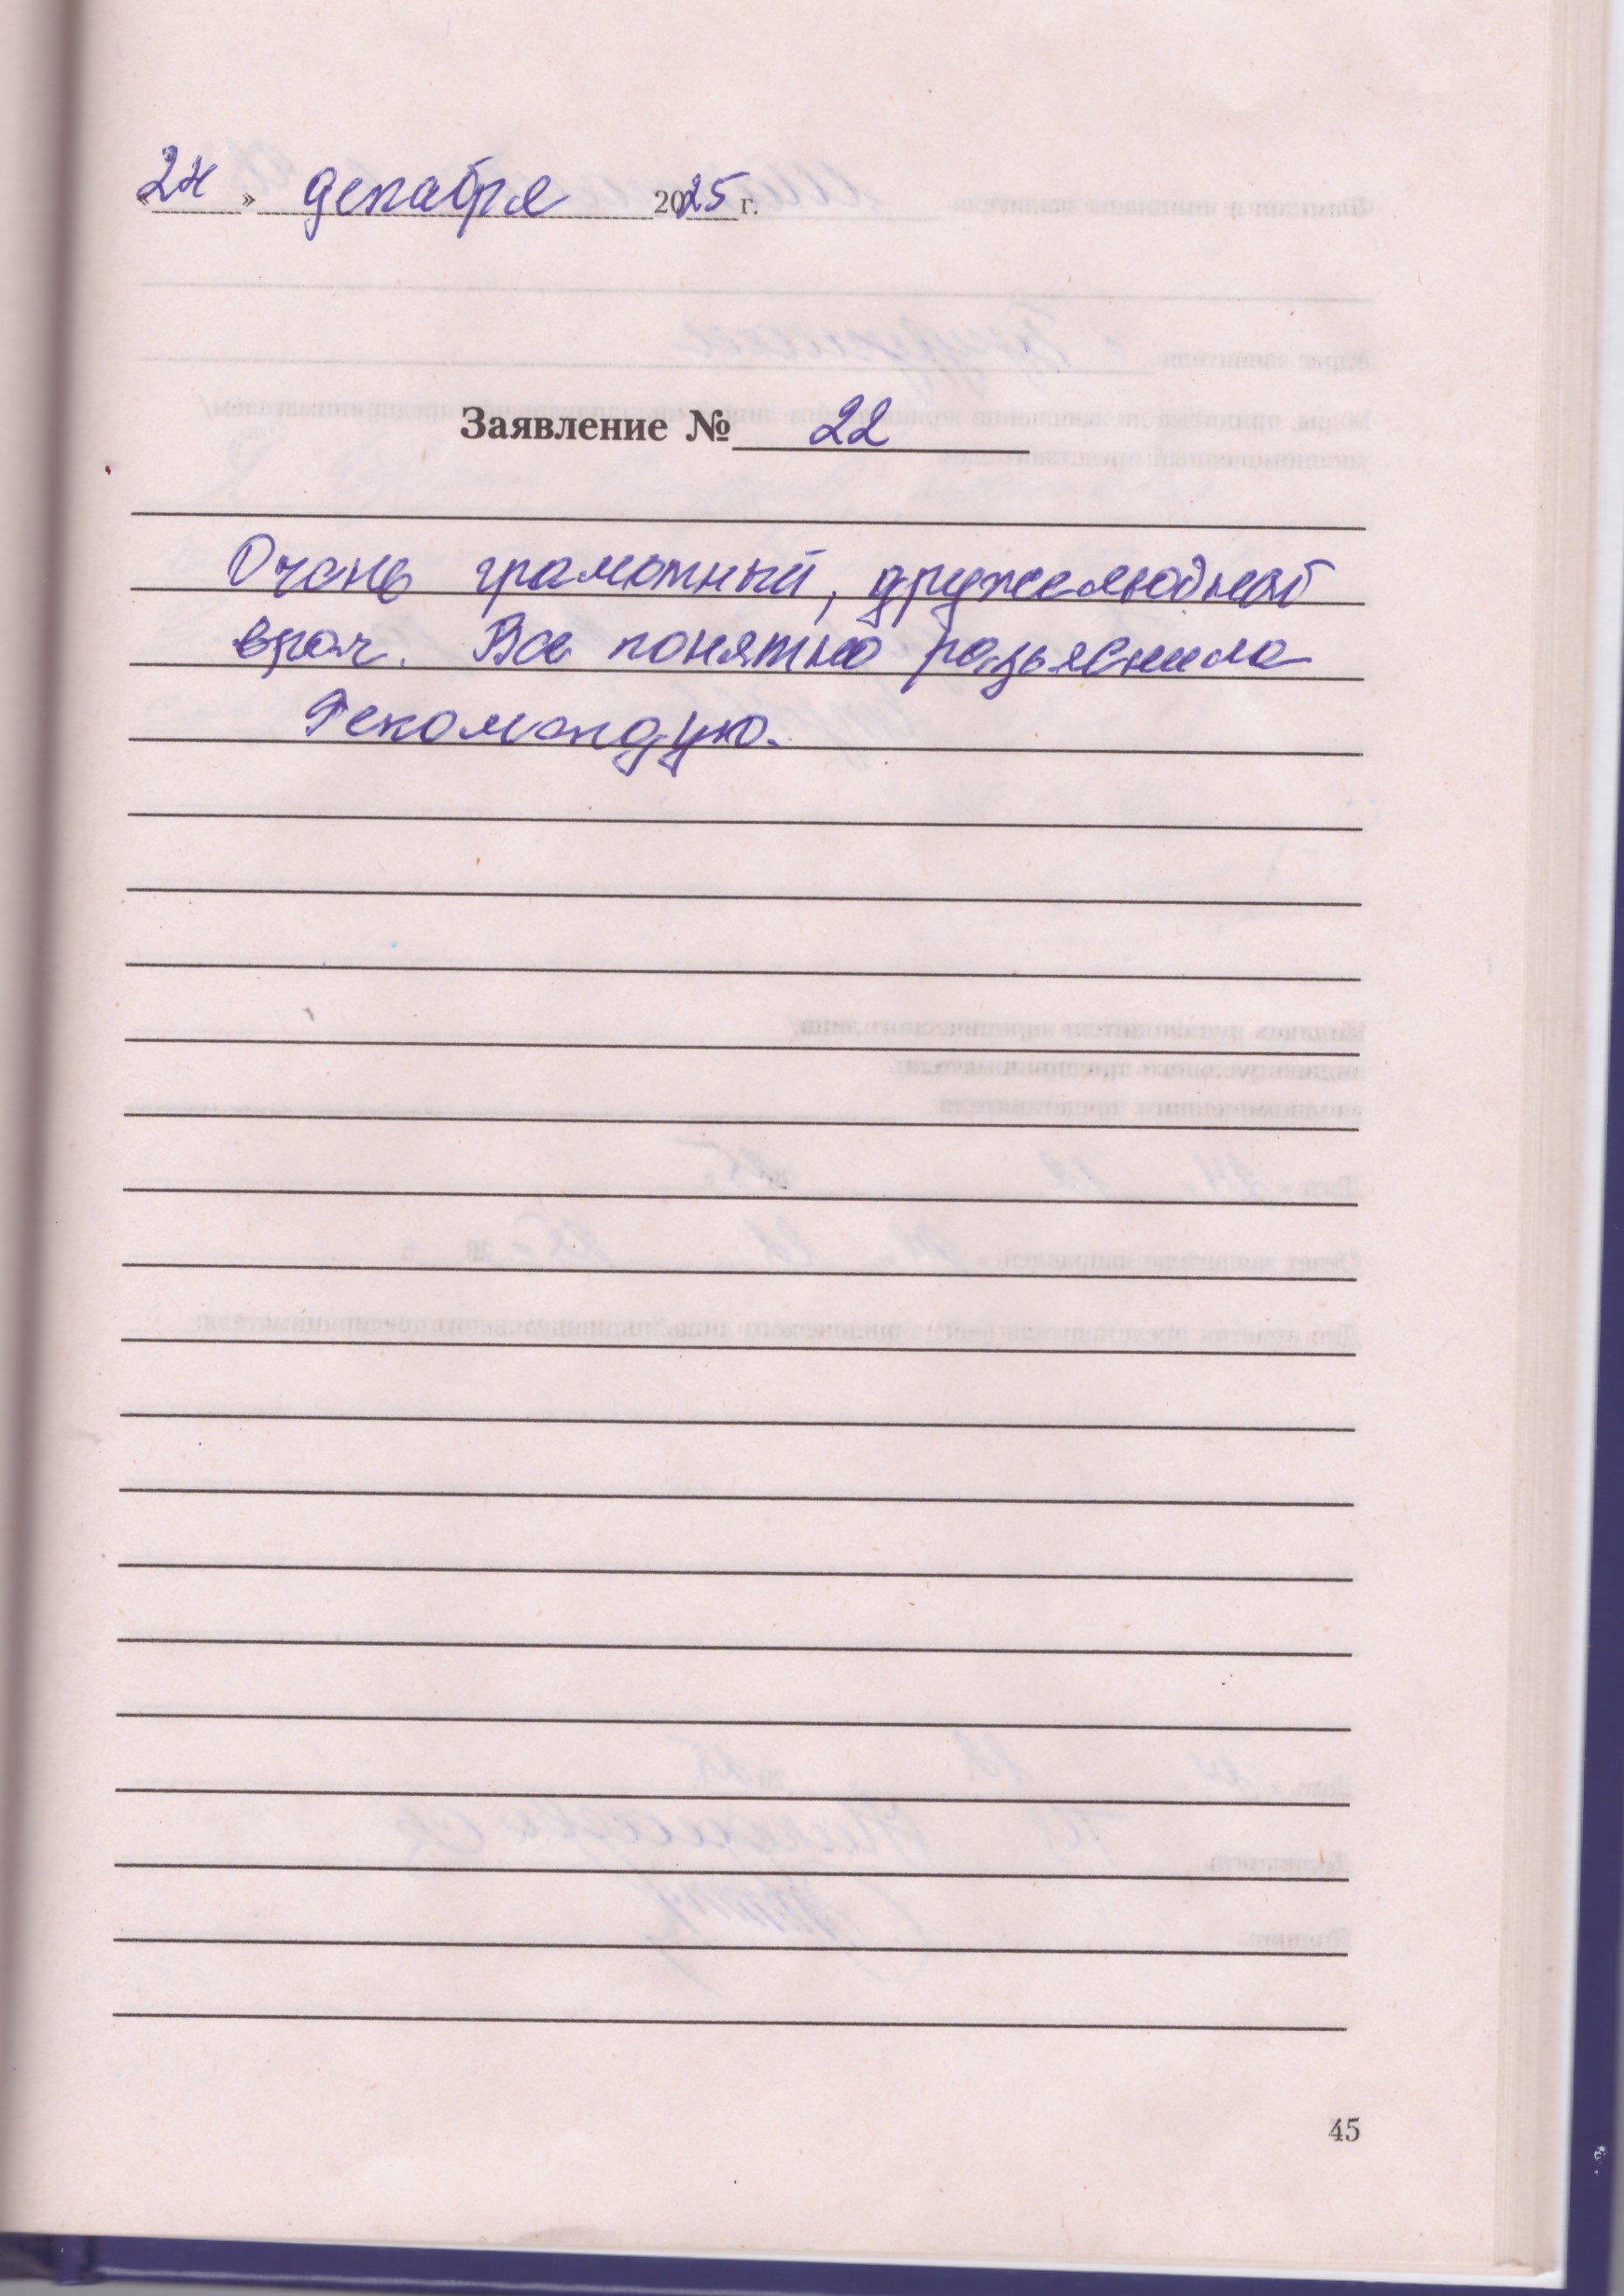 «24» декабря 2025 г.
Заявление № 22
Очень грамотный, дружелюбный
врач. Все понятно разъяснила
Рекомендую.
45